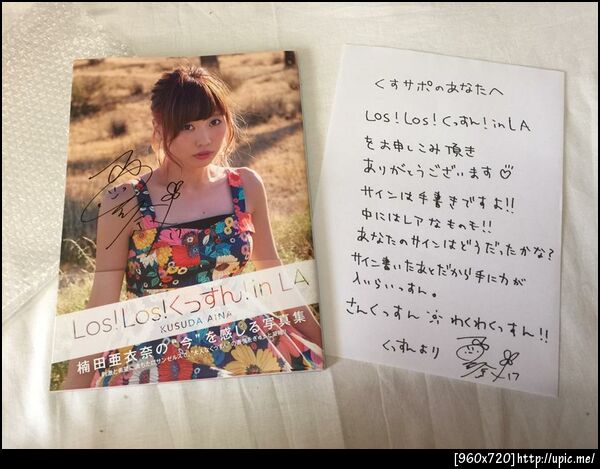 Los! Los! くっすん! in LA
KUSUDA AINA
楠田亜衣奈の"今"を感じる写真集
くすサポのあなたへ
Los! Los! くっすん! in LA
をお申しこみ頂き
ありがとうございます♡
サインは手書きですよ!!
中にはレアなものも!!
あなたのサインはどうだったかな?
サイン書いたあとだから手に力が
入らいっすん。
さんくっすん わくわくっすん!!
くっすんより
17
[960x720]http://upic.me/